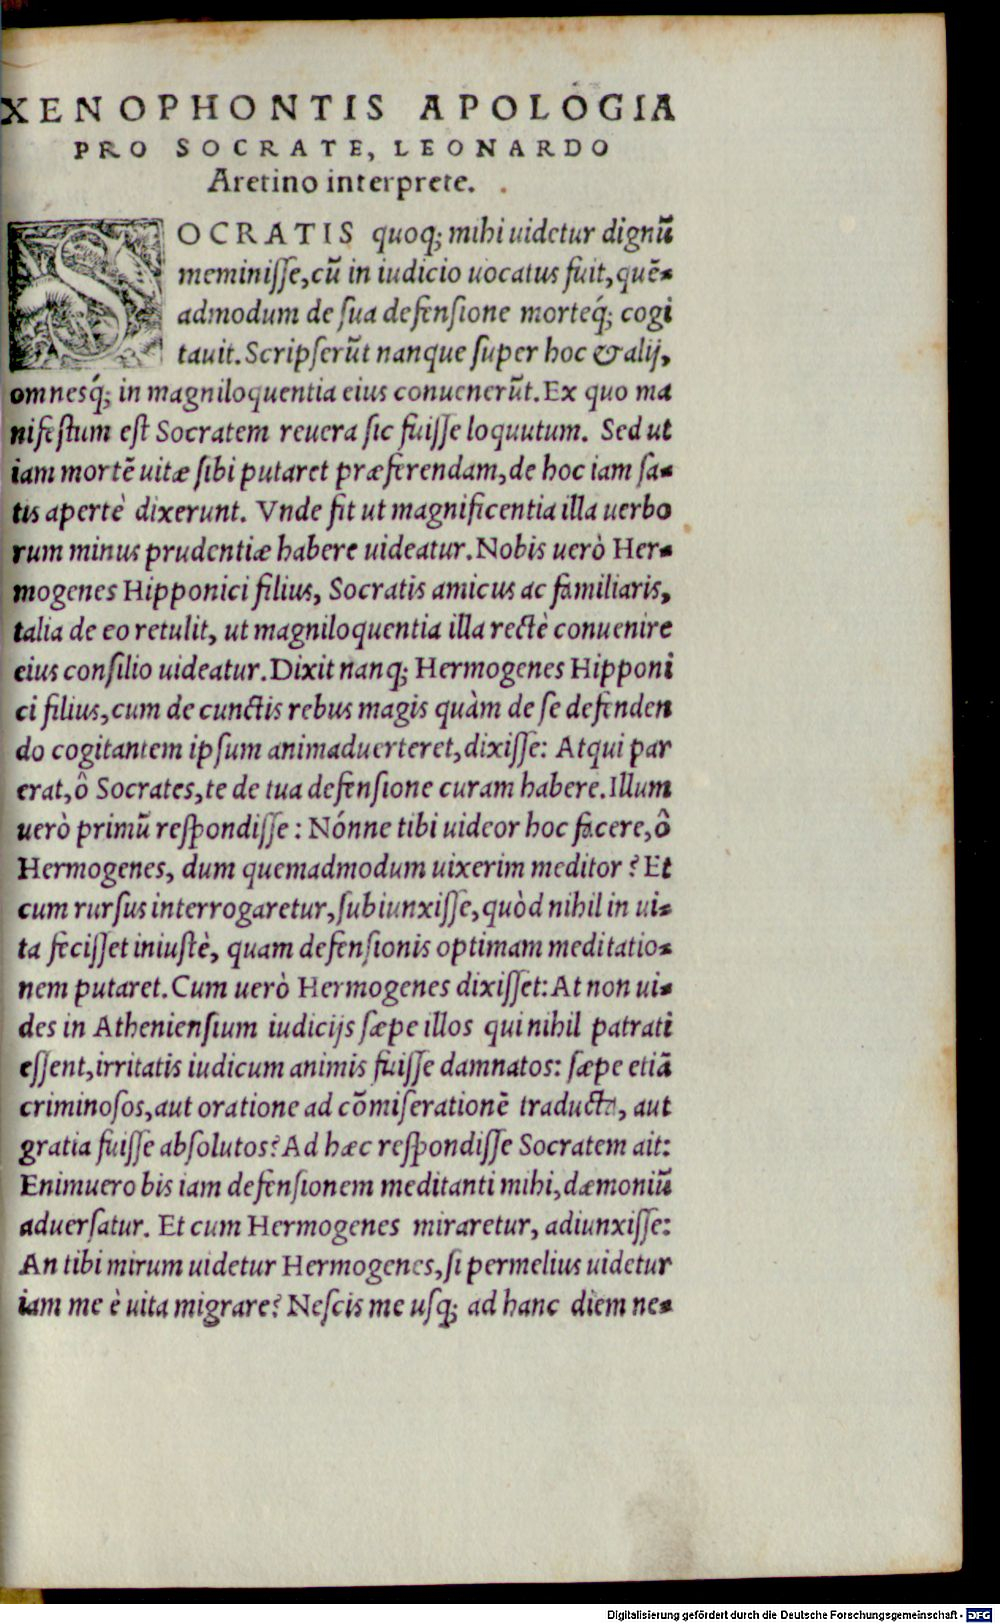 XENOPHONTIS APOLOGIA
PRO SOCRATE, LEONARDO
Aretino interprete.
SOCRATIS quoq; mihi uidetur dignũ
meminiſſe, cũ in iudicio uocatus fuit, quẽ-
admodum de ſua defenſione morteq́; cogi
tauit. Scripſerũt nanque ſuper hoc & alij,
omnesq́; in magniloquentia eius conuenerũt. Ex quo ma
nifeſtum eſt Socratem reuera ſic fuiſſe loquutum. Sed ut
iam mortẽ uitæ ſibi putaret præferendam, de hoc iam ſa-
tis apertè dixerunt. Vnde fit ut magnificentia illa uerbo
rum minus prudentiæ habere uideatur. Nobis uerò Her-
mogenes Hipponici filius, Socratis amicus ac familiaris,
talia de eo retulit, ut magniloquentia illa rectè conuenire
eius conſilio uideatur. Dixit nanq; Hermogenes Hipponi
ci filius, cum de cunctis rebus magis quàm de ſe defenden
do cogitantem ipſum animaduerteret, dixiſſe: Atqui par
erat, ô Socrates, te de tua defenſione curam habere. Illum
uerò primũ reſpondiſſe: Nónne tibi uideor hoc facere, ô
Hermogenes, dum quemadmodum uixerim meditor? Et
cum rurſus interrogaretur, ſubiunxiſſe, quòd nihil in ui-
ta feciſſet iniuſtè, quam defenſionis optimam meditatio-
nem putaret. Cum uerò Hermogenes dixiſſet: At non ui-
des in Athenienſium iudicijs ſæpe illos qui nihil patrati
eſſent, irritatis iudicum animis fuiſſe damnatos: ſæpe etiã
criminoſos, aut oratione ad cõmiſerationẽ traducta, aut
gratia fuiſſe abſolutos? Ad hæc reſpondiſſe Socratem ait:
Enimuero bis iam defenſionem meditanti mihi, dæmoniũ
aduerſatur. Et cum Hermogenes miraretur, adiunxiſſe:
An tibi mirum uidetur Hermogenes, ſi permelius uidetur
iam me è uita migrare? Neſcis me uſq; ad hanc diem ne-
Digitalisierung gefördert durch die Deutsche Forschungsgemeinschaft - DFG